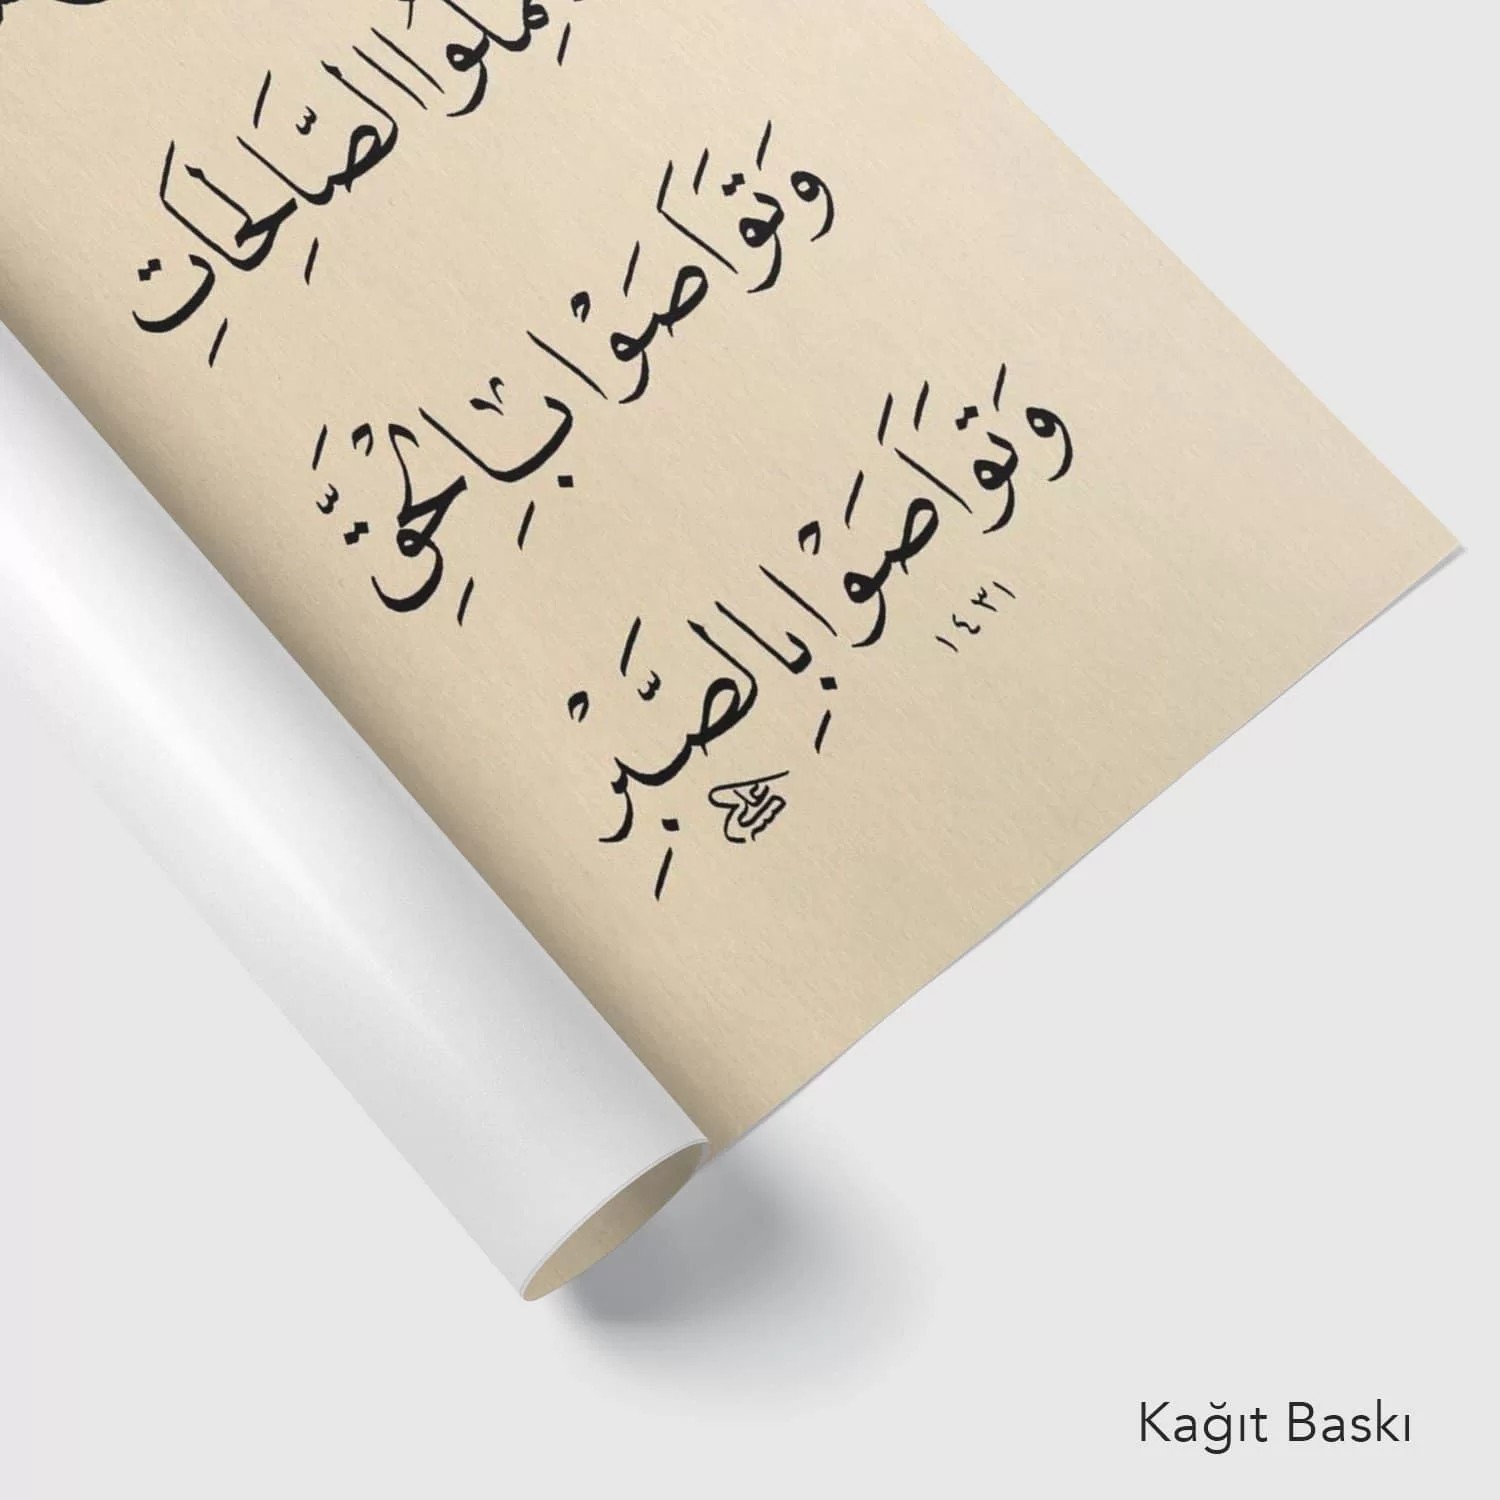 الصَّالِحَاتِ
وَتَوَاصَوْا بِالْحَقِّ
وَتَوَاصَوْا بِالصَّبْرِ
١٤٣١
Kağıt Baskı